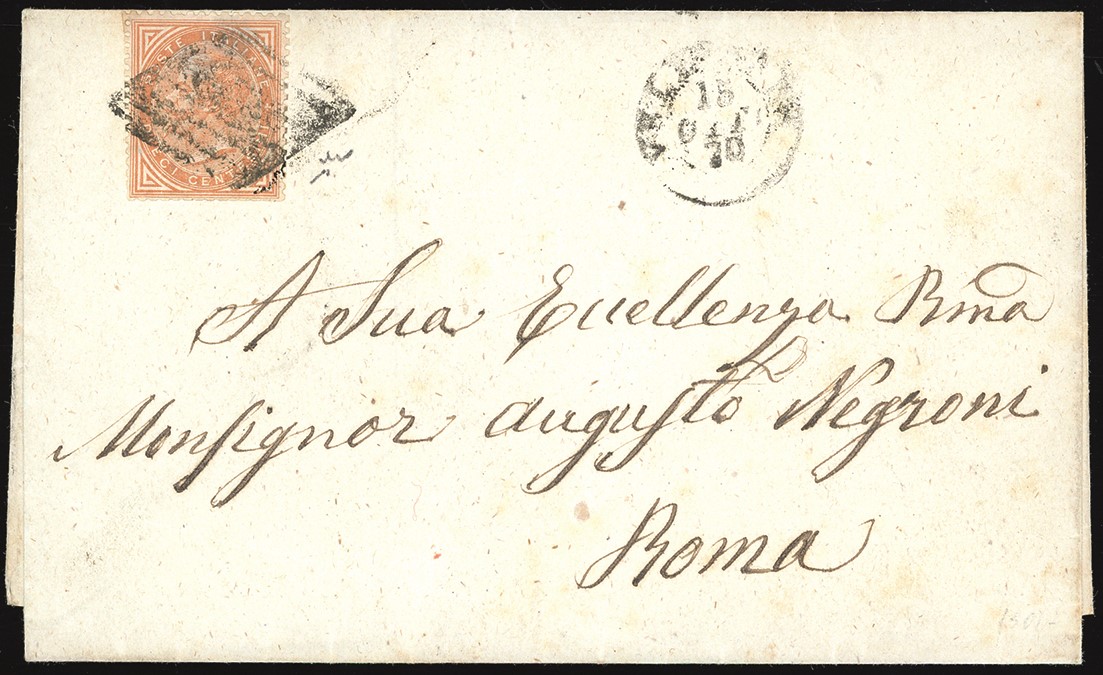 POSTE ITALIANE
CENT
15
OTT
70
A Sua Eccellenza Rma
Monsignor Augusto Negroni
Roma